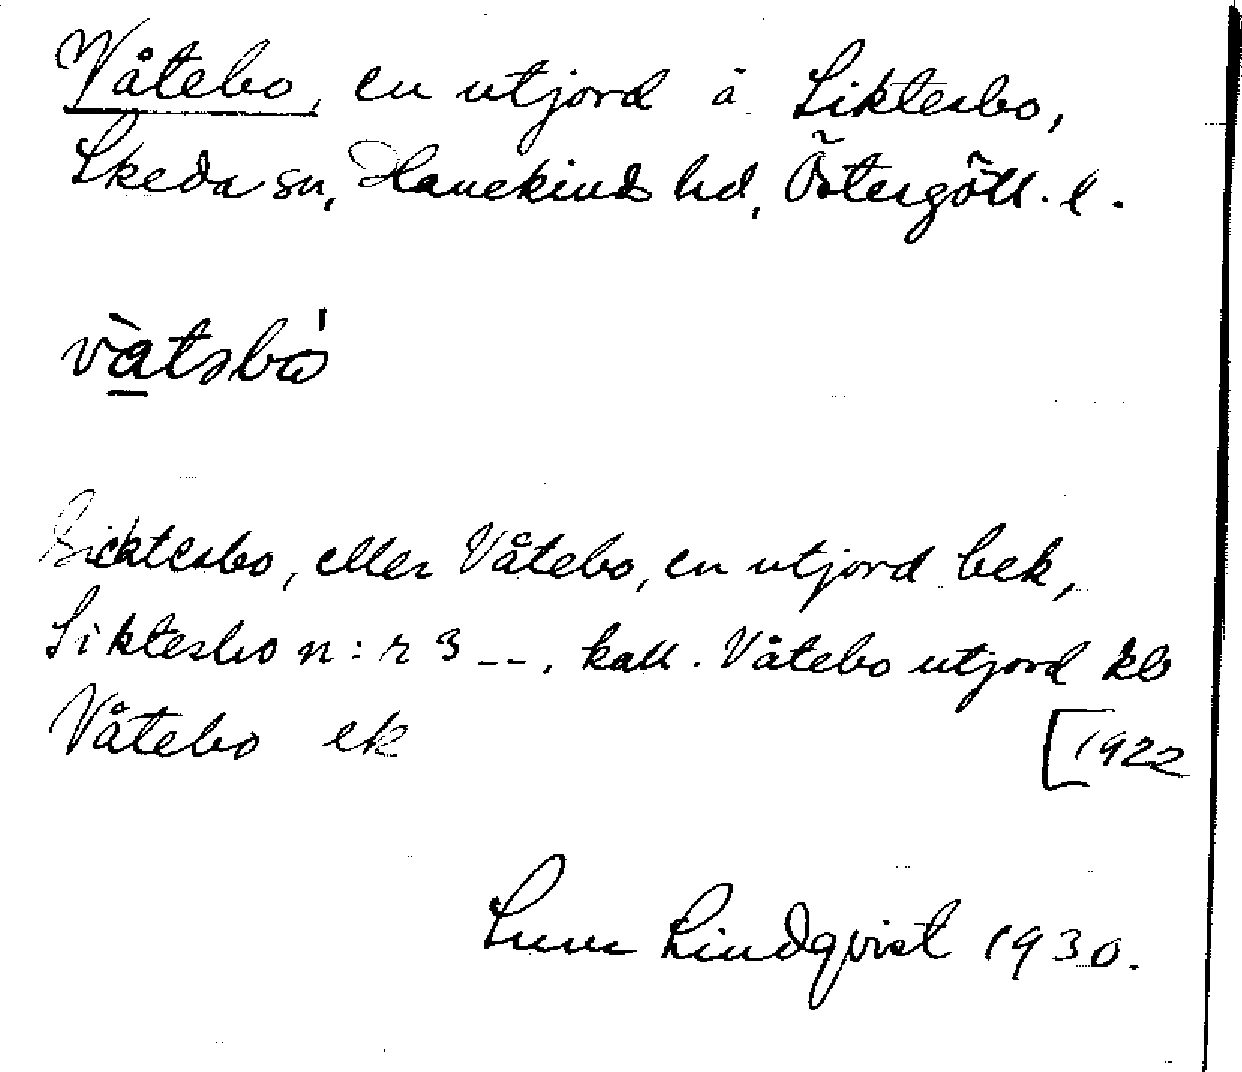 Våtebo, en utjord å Siktesbo,
Skeda sn, Hanekinds hd, Östergötl. l.
våtsbo
Sicktesbo, eller Våtebo, en utjord bek,
Siktesbo n:r 3 --. kall. Våtebo utjord kb
Våtebo ek [1922
Sune Lindqvist 1930.